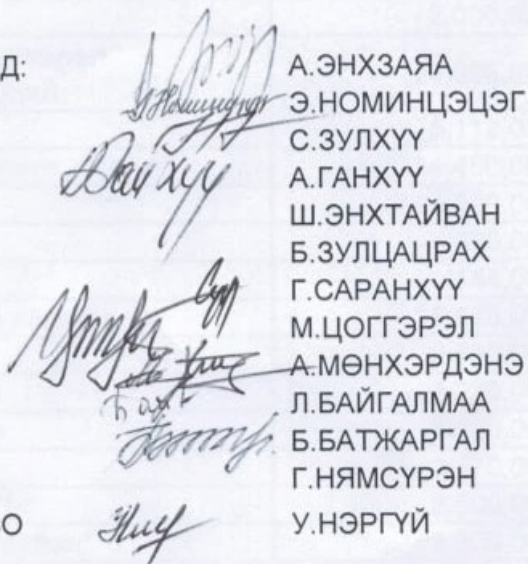 Д: А.ЭНХЗАЯА
Э.НОМИНЦЭЦЭГ
С.ЗУЛХҮҮ
А.ГАНХҮҮ
Ш.ЭНХТАЙВАН
Б.ЗУЛЦАЦРАХ
Г.САРАНХҮҮ
М.ЦОГГЭРЭЛ
А.МӨНХЭРДЭНЭ
Л.БАЙГАЛМАА
Б.БАТЖАРГАЛ
Г.НЯМСҮРЭН
О У.НЭРГҮЙ